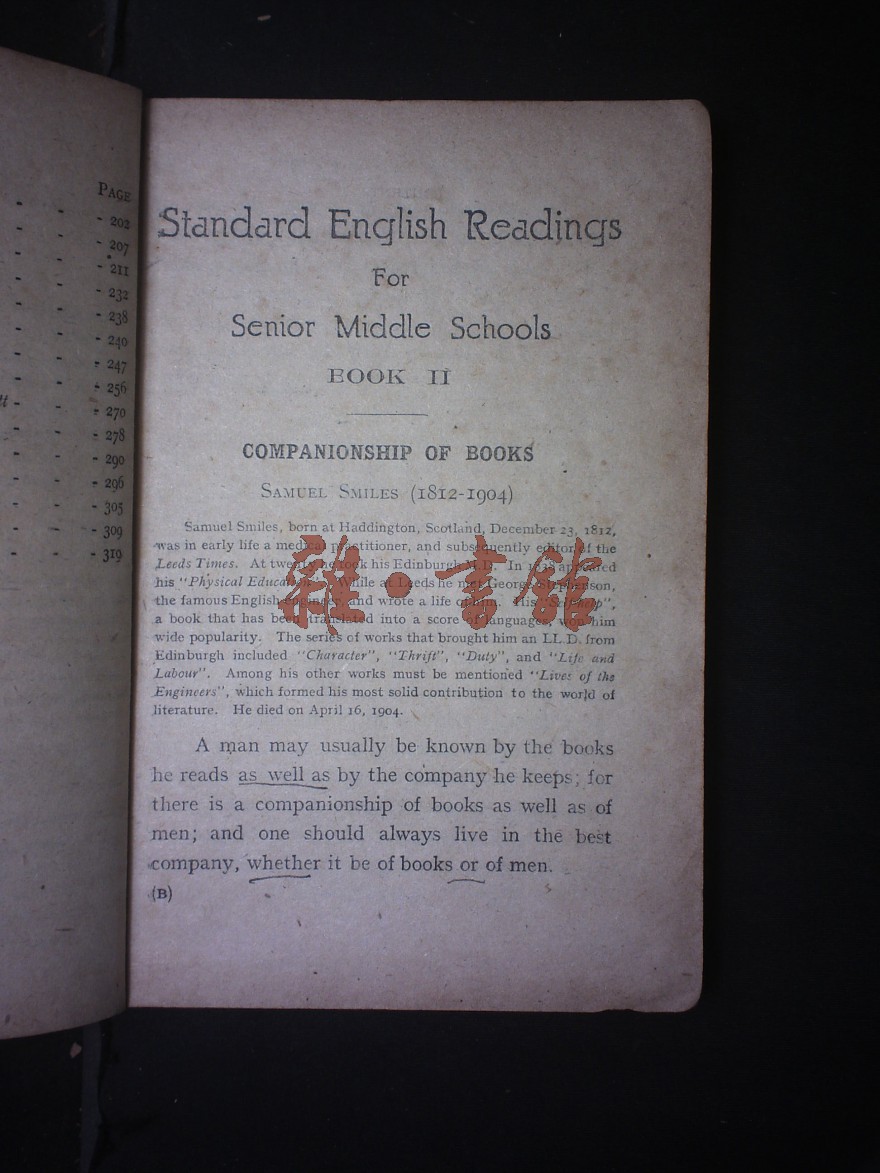 PAGE
- - - 202
- - - 207
- - - 211
- - - 232
- - - 238
- - - 240
- - - 247
- - - 256
tt - - - 270
- - - 278
- - - 290
- - - 296
- - - 305
- - - 309
- - - 319
Standard English Readings
For
Senior Middle Schools
BOOK II
COMPANIONSHIP OF BOOKS
SAMUEL SMILES (1812-1904)
Samuel Smiles, born at Haddington, Scotland, December 23, 1812,
was in early life a medical practitioner, and subsequently editor of the
Leeds Times. At twenty he took his Edinburgh M.D. In 1838 appeared
his "Physical Education". While at Leeds he met George Stephenson,
the famous English engineer, and wrote a life of him. His "Self-help",
a book that has been translated into a score of languages, won him
wide popularity. The series of works that brought him an LL.D. from
Edinburgh included "Character", "Thrift", "Duty", and "Life and
Labour". Among his other works must be mentioned "Lives of the
Engineers", which formed his most solid contribution to the world of
literature. He died on April 16, 1904.
A man may usually be known by the books
he reads as well as by the company he keeps; for
there is a companionship of books as well as of
men; and one should always live in the best
company, whether it be of books or of men.
(B)
雜·書館